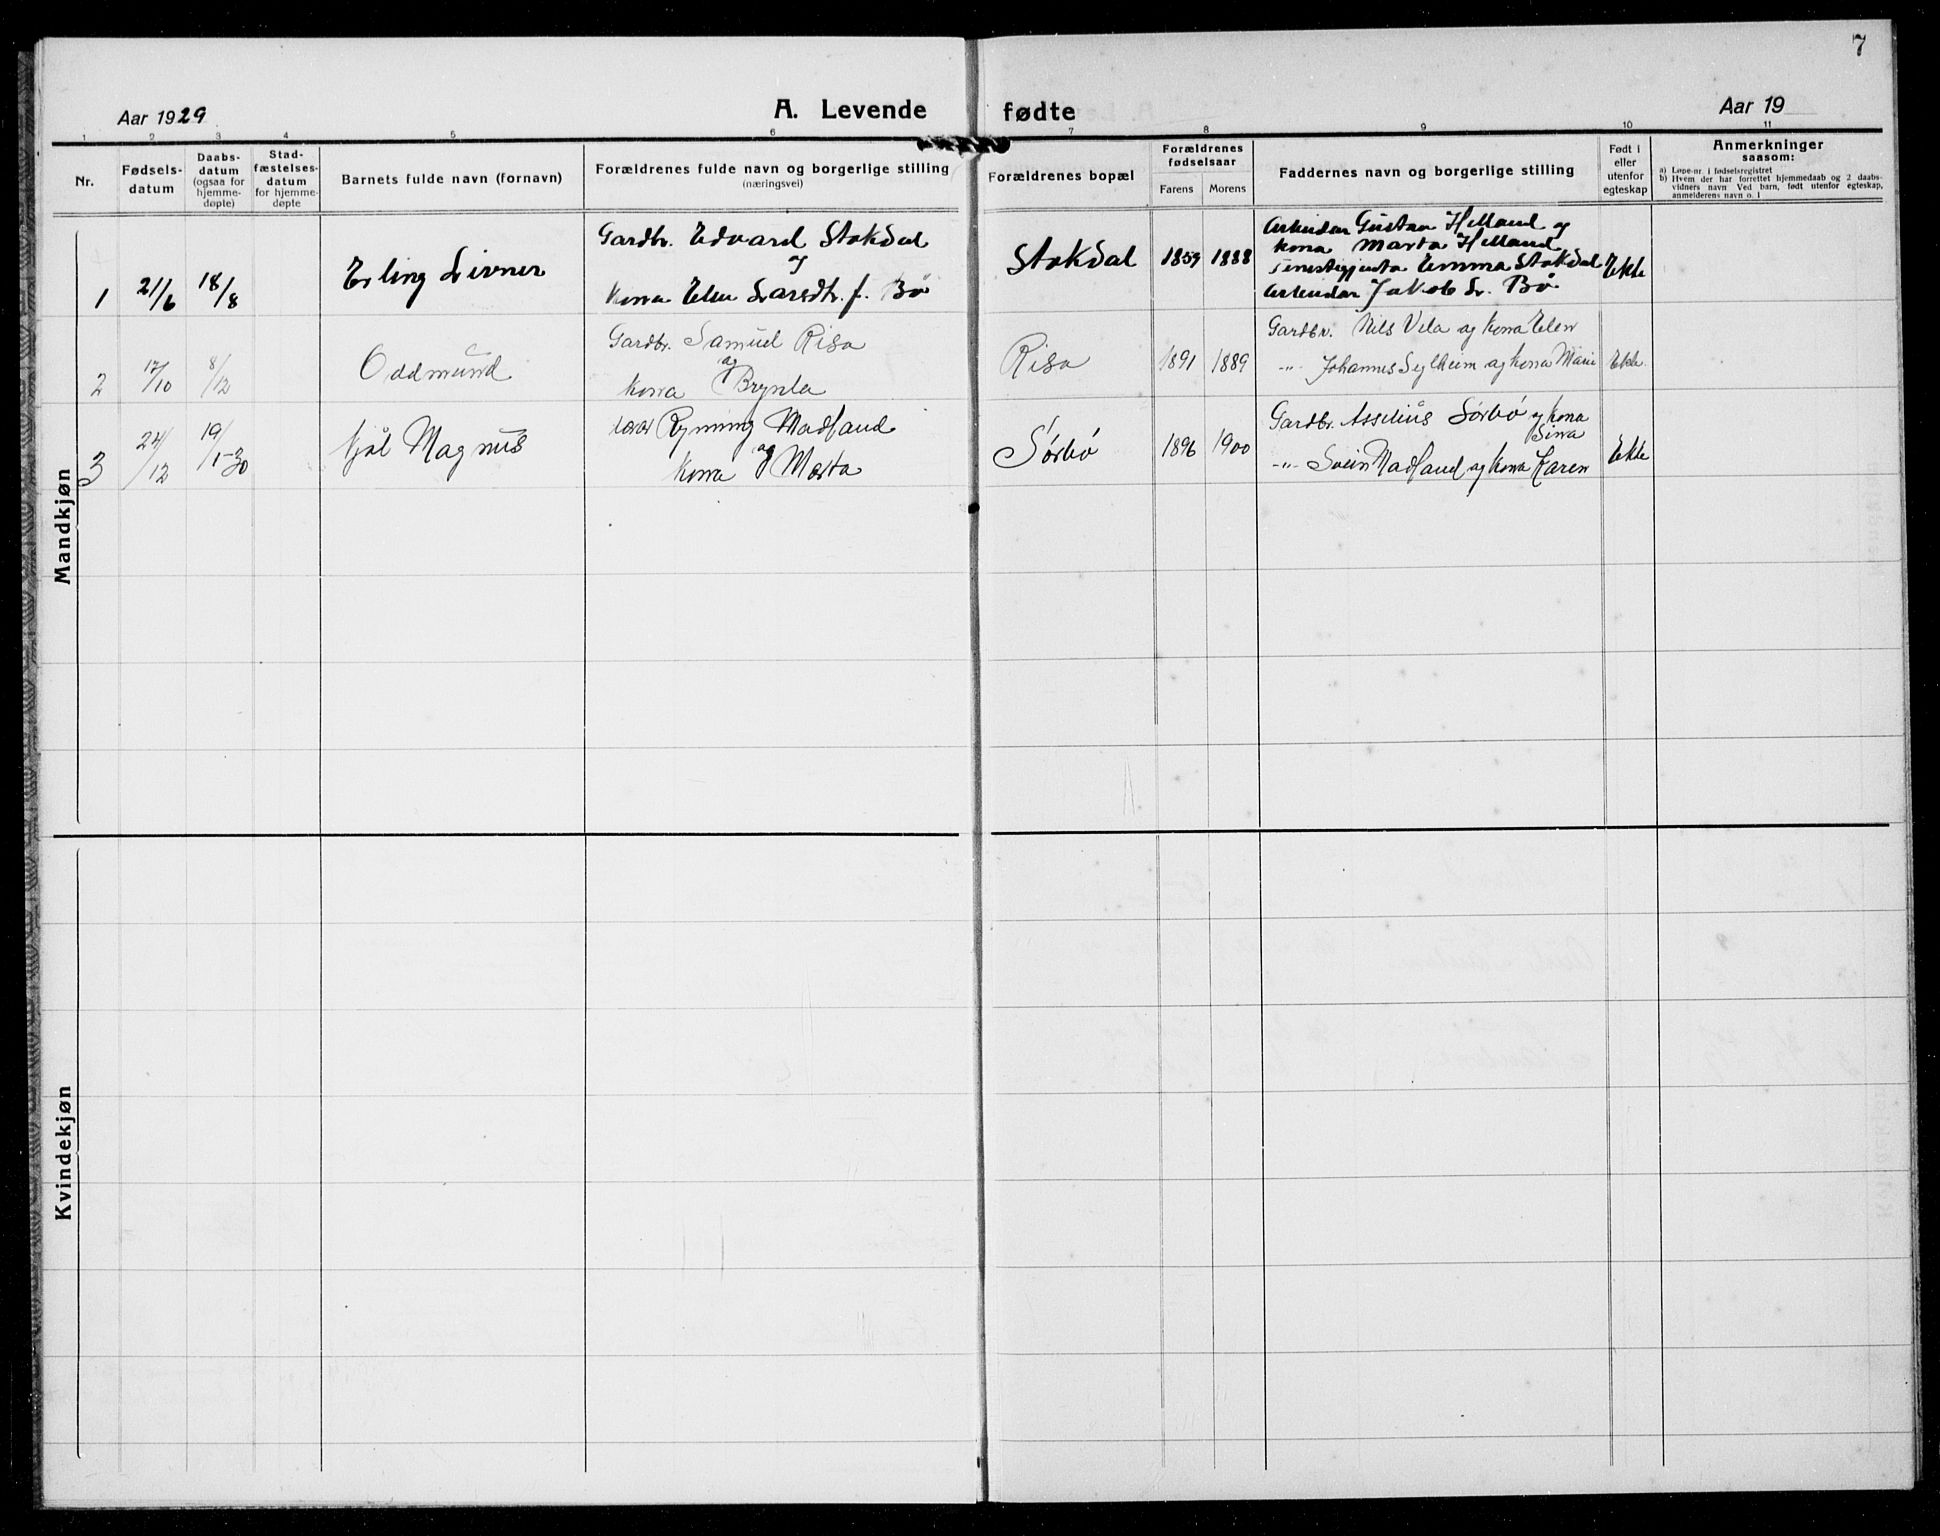 7
Aar 1929
A. Levende fødte
Aar 19
1 2 3 4 5 6 7 8 9 10 11
Nr.
Fødsels-
datum
Daabs-
datum
(ogsaa for
hjemme-
døpte)
Stad-
fæstelses-
datum
for hjemme-
døpte
Barnets fulde navn (fornavn)
Forældrenes fulde navn og borgerlige stilling
(næringsvei)
Forældrenes bopæl
Forældrenes
fødselsaar
Farens Morens
Faddernes navn og borgerlige stilling
Født i
eller
utenfor
egteskap
Anmerkninger
saasom:
a) Løpe-nr. i fødselsregistret
b) Hvem der har forrettet hjemmedaab og 2 daabs-
vidners navn Ved barn, født utenfor egteskap,
anmelderens navn o. l
Mandkjøn
1 21/6 18/8 Erling
Gardbr. Edvard Stokdal
og
kona Elen Larsdtr. f. Bø
Stokdal 1859 1888
Arbeidar Gustav Helland og
kona Marta Helland
Emma Stokdal
Arbeidar Jakob L. Bø
Ekte
2 17/10 8/12 Oddmund
Gardbr. Samuel Risa
og
kona
Risa 1891 1889
Gardbr. Nils Vela og kona Elen
-"- Johannes og kona Marie
Ekte
3 24/12 19/1-30 Kjøl Magnus
Madland
og
kona Marta
Sørbø 1896 1900
Gardbr. Sørbø og kona
-"- Svein Madland og kona Karen
Ekte
Kvindekjøn